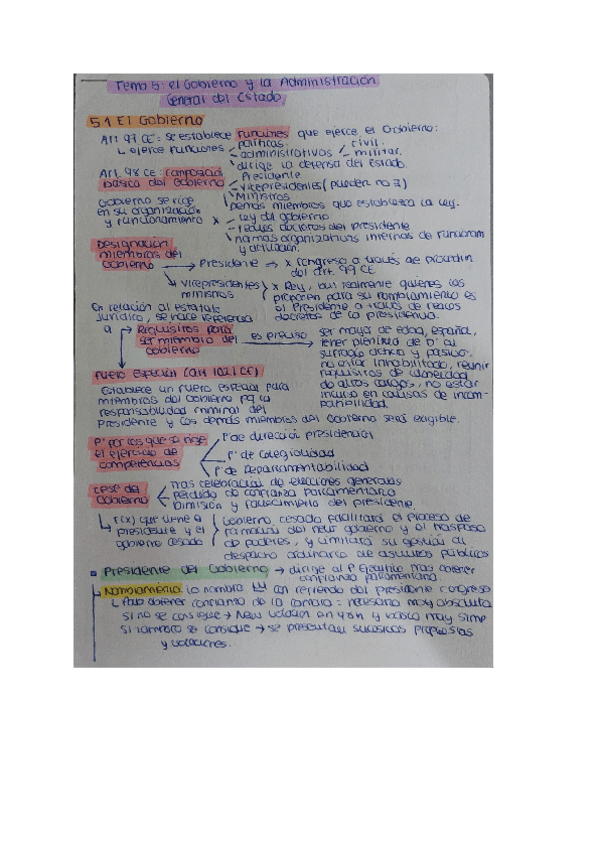 Tema 5: el Gobierno y la Administración
General del Estado
5.1 El Gobierno
Art 97 CE: se establece funciones que ejerce el Gobierno:
↳ ejerce funciones
políticas
administrativas
civil.
militar.
dirige la defensa del Estado.
Art. 98 CE: composición
básica del Gobierno
Presidente
Vicepresidentes (pueden no ∃)
Ministros
Demás miembros que establezca la ley.
Gobierno se rige
en su organización
y funcionamiento x
Ley del gobierno
reales decretos del presidente
normas organizativas internas de funcionam
y actuación.
Designación
miembros del
Gobierno
Presidente → x congreso a través de procedim
del art. 99 CE
Vicepresidentes
ministros
x Rey, pero realmente quienes los
proponen para su nombramiento es
el Presidente a través de reales
decretos de la presidencia.
En relación al estatuto
jurídico, se hace referencia
a
Requisitos para
ser miembro del
Gobierno
es preciso
ser mayor de edad, español,
tener plenitud de Dº al
sufragio activo y pasivo,
no estar inhabilitado, reunir
requisitos de idoneidad
de altos cargos, no estar
incurso en causas de incom-
patibilidad.
Fuero especial (Art 102.1 CE)
Establece un fuero especial para
miembros del Gobierno pq la
responsabilidad criminal del
Presidente y los demás miembros del Gobierno será exigible.
Pº por los que se rige
el ejercicio de
competencias
Pº de dirección presidencial
Pº de Colegialidad
Pº de Departamentabilidad
Cese del
Gobierno
Tras celebración de elecciones generales
Pérdida de confianza parlamentaria
Dimisión y fallecimiento del presidente.
↳ f(x) que tiene el
presidente y el
gobierno cesado
Gobierno cesado facilitará el proceso de
formación del new gobierno y el traspaso
de poderes, y limitará su gestión al
despacho ordinario de asuntos públicos
Presidente del Gobierno → dirige al P. Ejecutivo tras obtener
confianza parlamentaria.
Nombramiento: lo nombra con refrendo del Presidente congreso
↳ Para obtener confianza de la cámara = necesario may absoluta
si no se consigue → New votación en 48h y basta may simp
si tampoco se consigue → se presentan sucesivas propuestas
y votaciones.